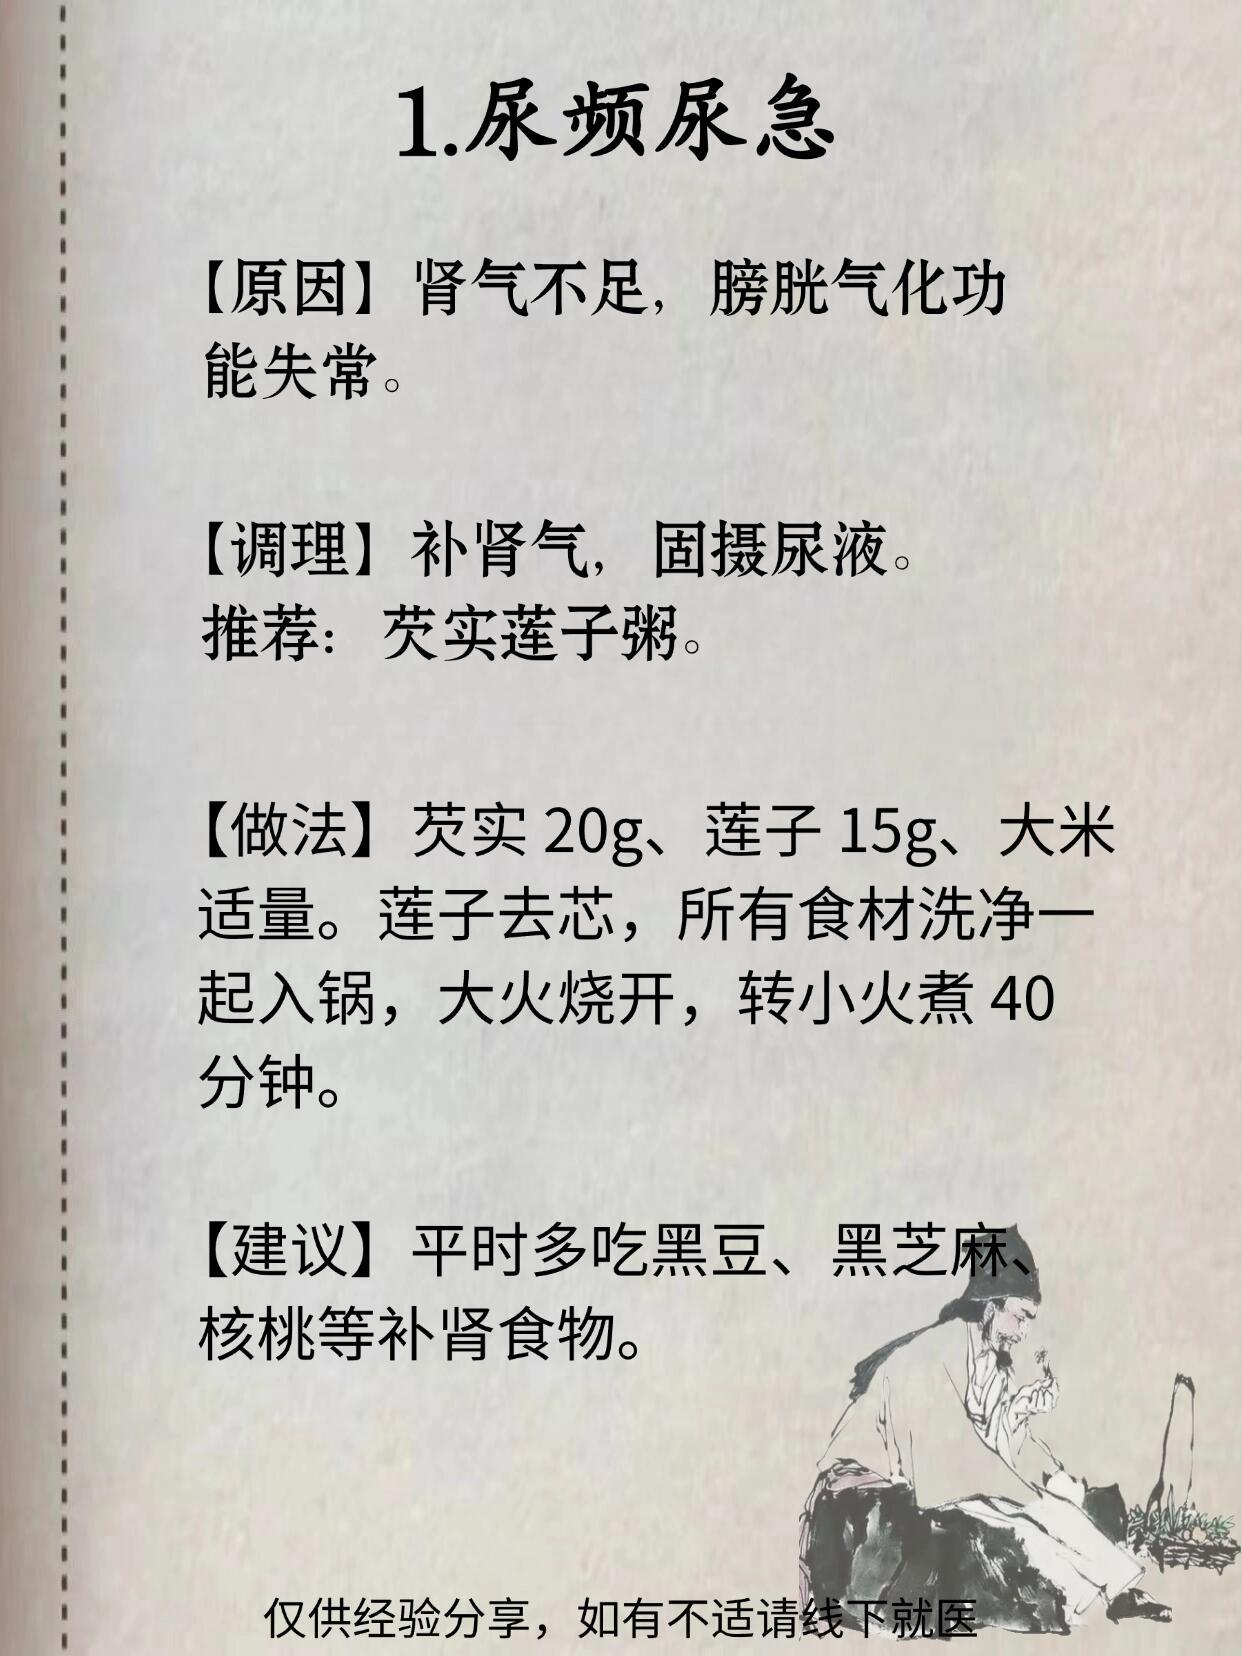 1.尿频尿急
【原因】肾气不足，膀胱气化功
能失常。
【调理】补肾气，固摄尿液。
推荐：芡实莲子粥。
【做法】芡实 20g、莲子 15g、大米
适量。莲子去芯，所有食材洗净一
起入锅，大火烧开，转小火煮 40
分钟。
【建议】平时多吃黑豆、黑芝麻、
核桃等补肾食物。
仅供经验分享，如有不适请线下就医